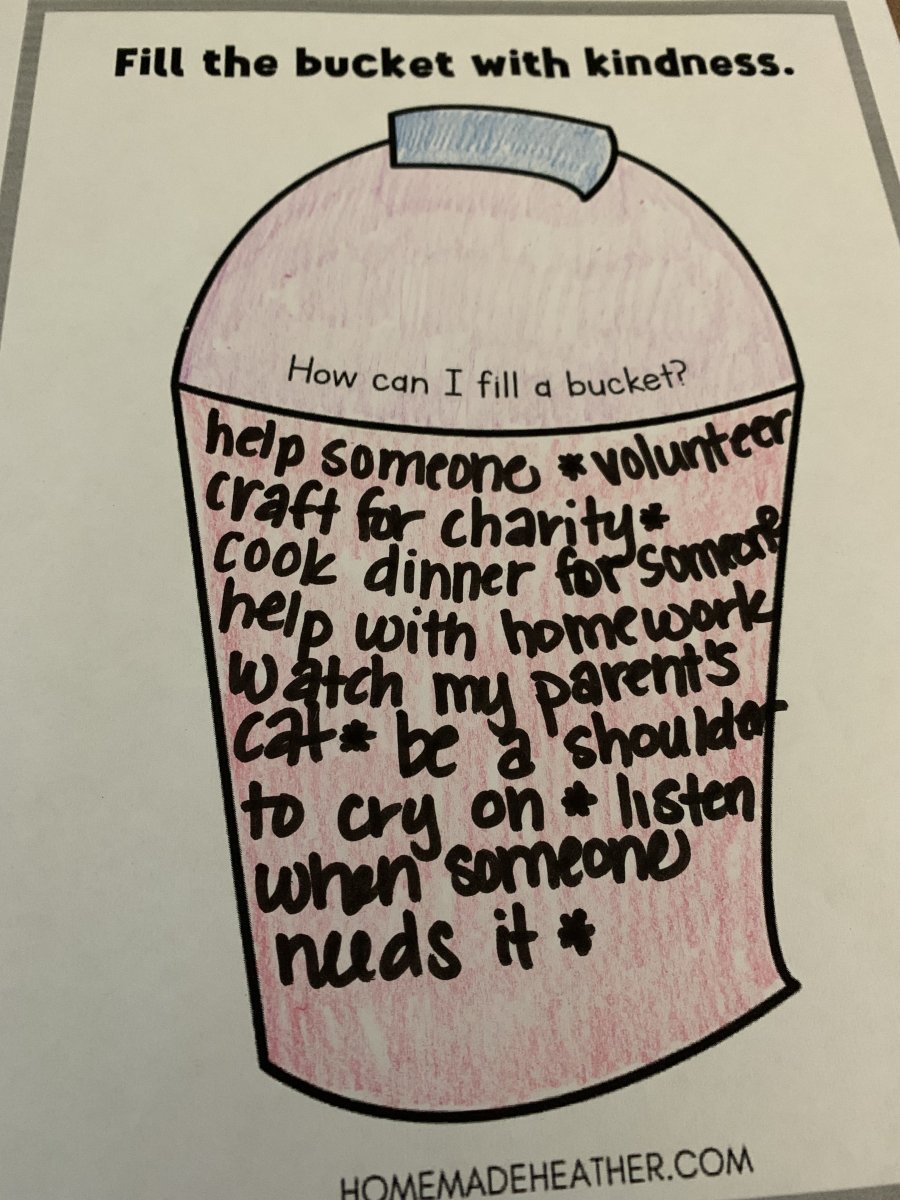 Fill the bucket with kindness.
How can I fill a bucket?
help someone * volunteer
craft for charity *
cook dinner for someone
help with homework
watch my parent's
cat * be a shoulder
to cry on * listen
when someone
needs it *
HOMEMADEHEATHER.COM